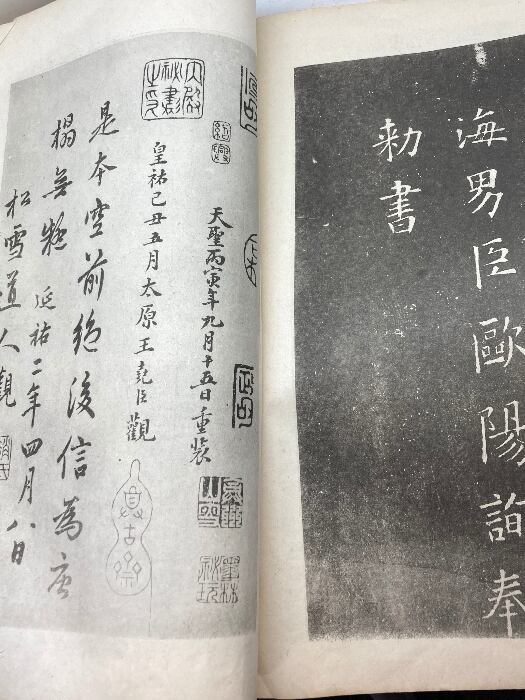 海男臣歐陽詢奉
勅書
天聖丙寅年九月十五日重裝
皇祐己丑五月太原王堯臣觀
是本空前絶後信爲唐
搨無疑延祐二年四月八日
松雪道人觀
大啟
祕書
之印
墨林
祕玩